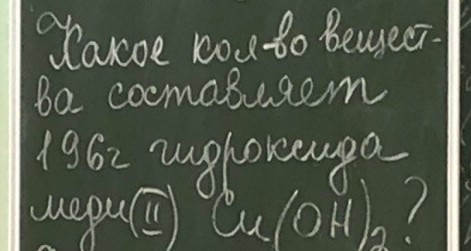 Какое кол-во вещест-
ва составляет
196г гидроксида
меди(II) Cu(OH)₂?